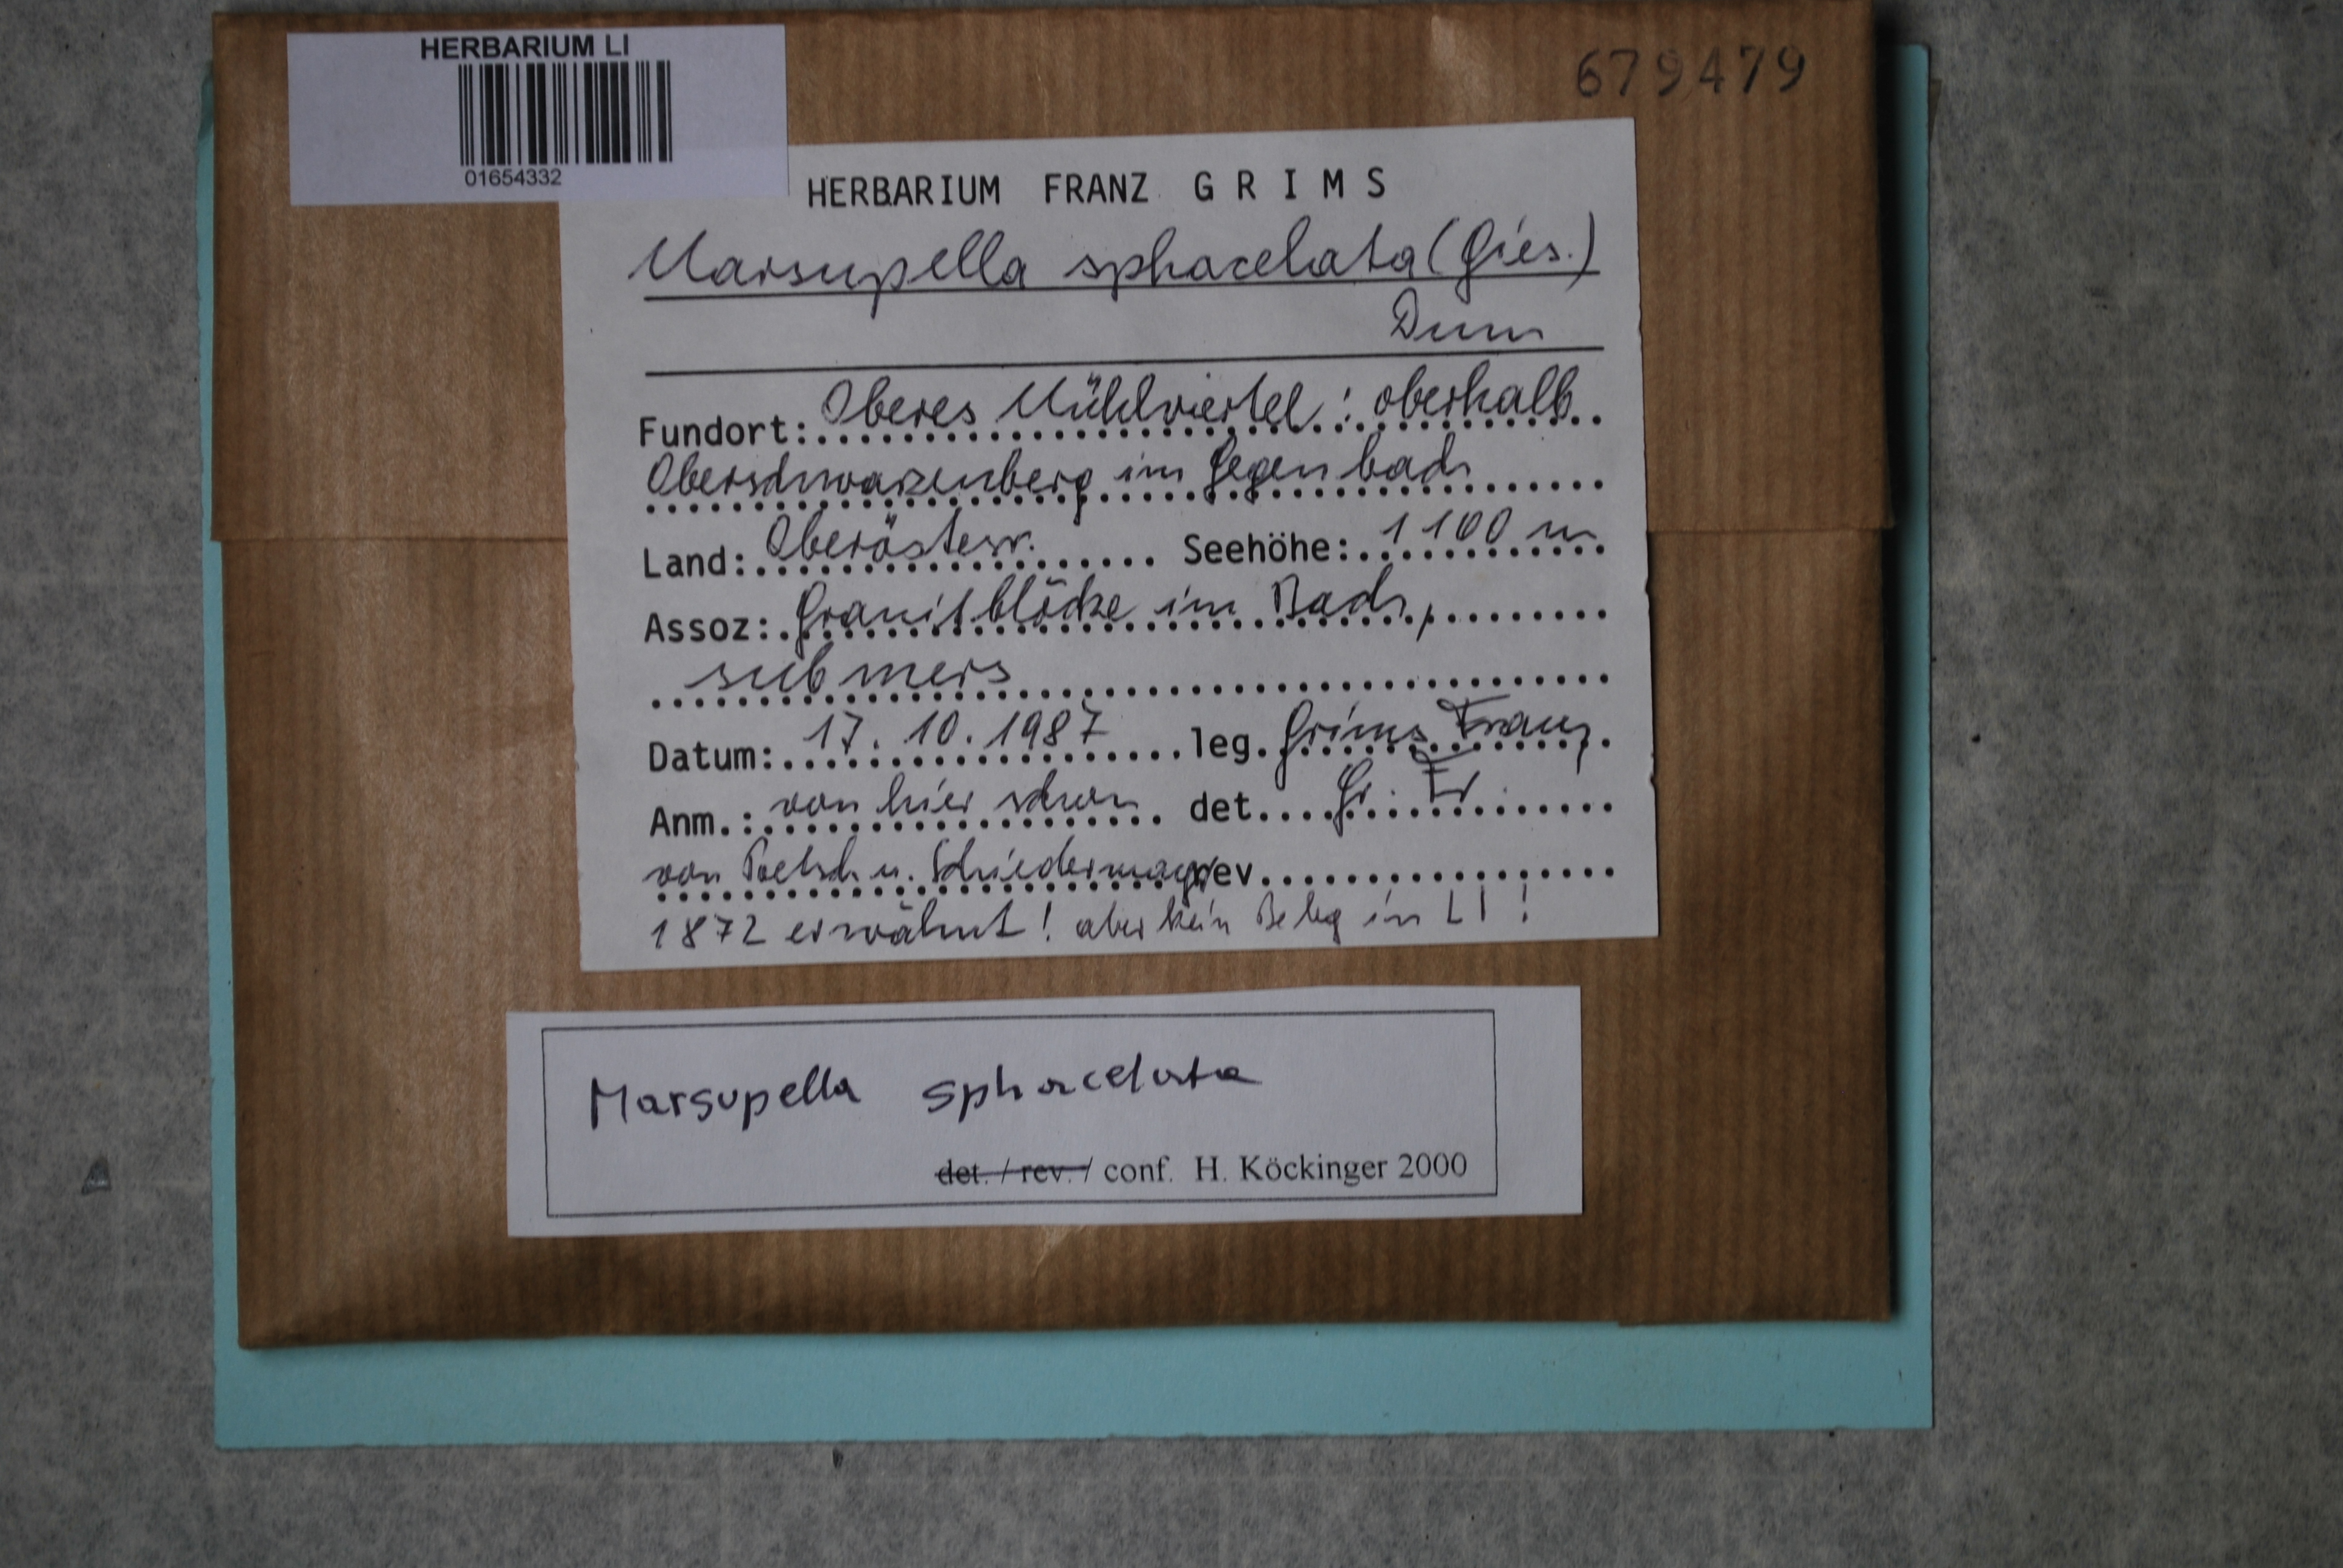 HERBARIUM LI
01654332
679479
HERBARIUM FRANZ GRIMS
Marsupella sphacelata (Gies.)
Dum
Fundort: Oberes Mühlviertel : oberhalb
Oberschwarzenberg im Gegenbach
Land: Oberösterr. Seehöhe: 1100 m
Assoz: Granitblöcke im Bach,
submers
Datum: 17. 10. 1987 leg. Grims Franz
Anm.: von hier schon det. Gr. Fr.
von Poetsch u. Schiedermayr rev.
1872 erwähnt! aber kein Beleg in LI!
Marsupella sphacelata
det. / rev. / conf. H. Köckinger 2000